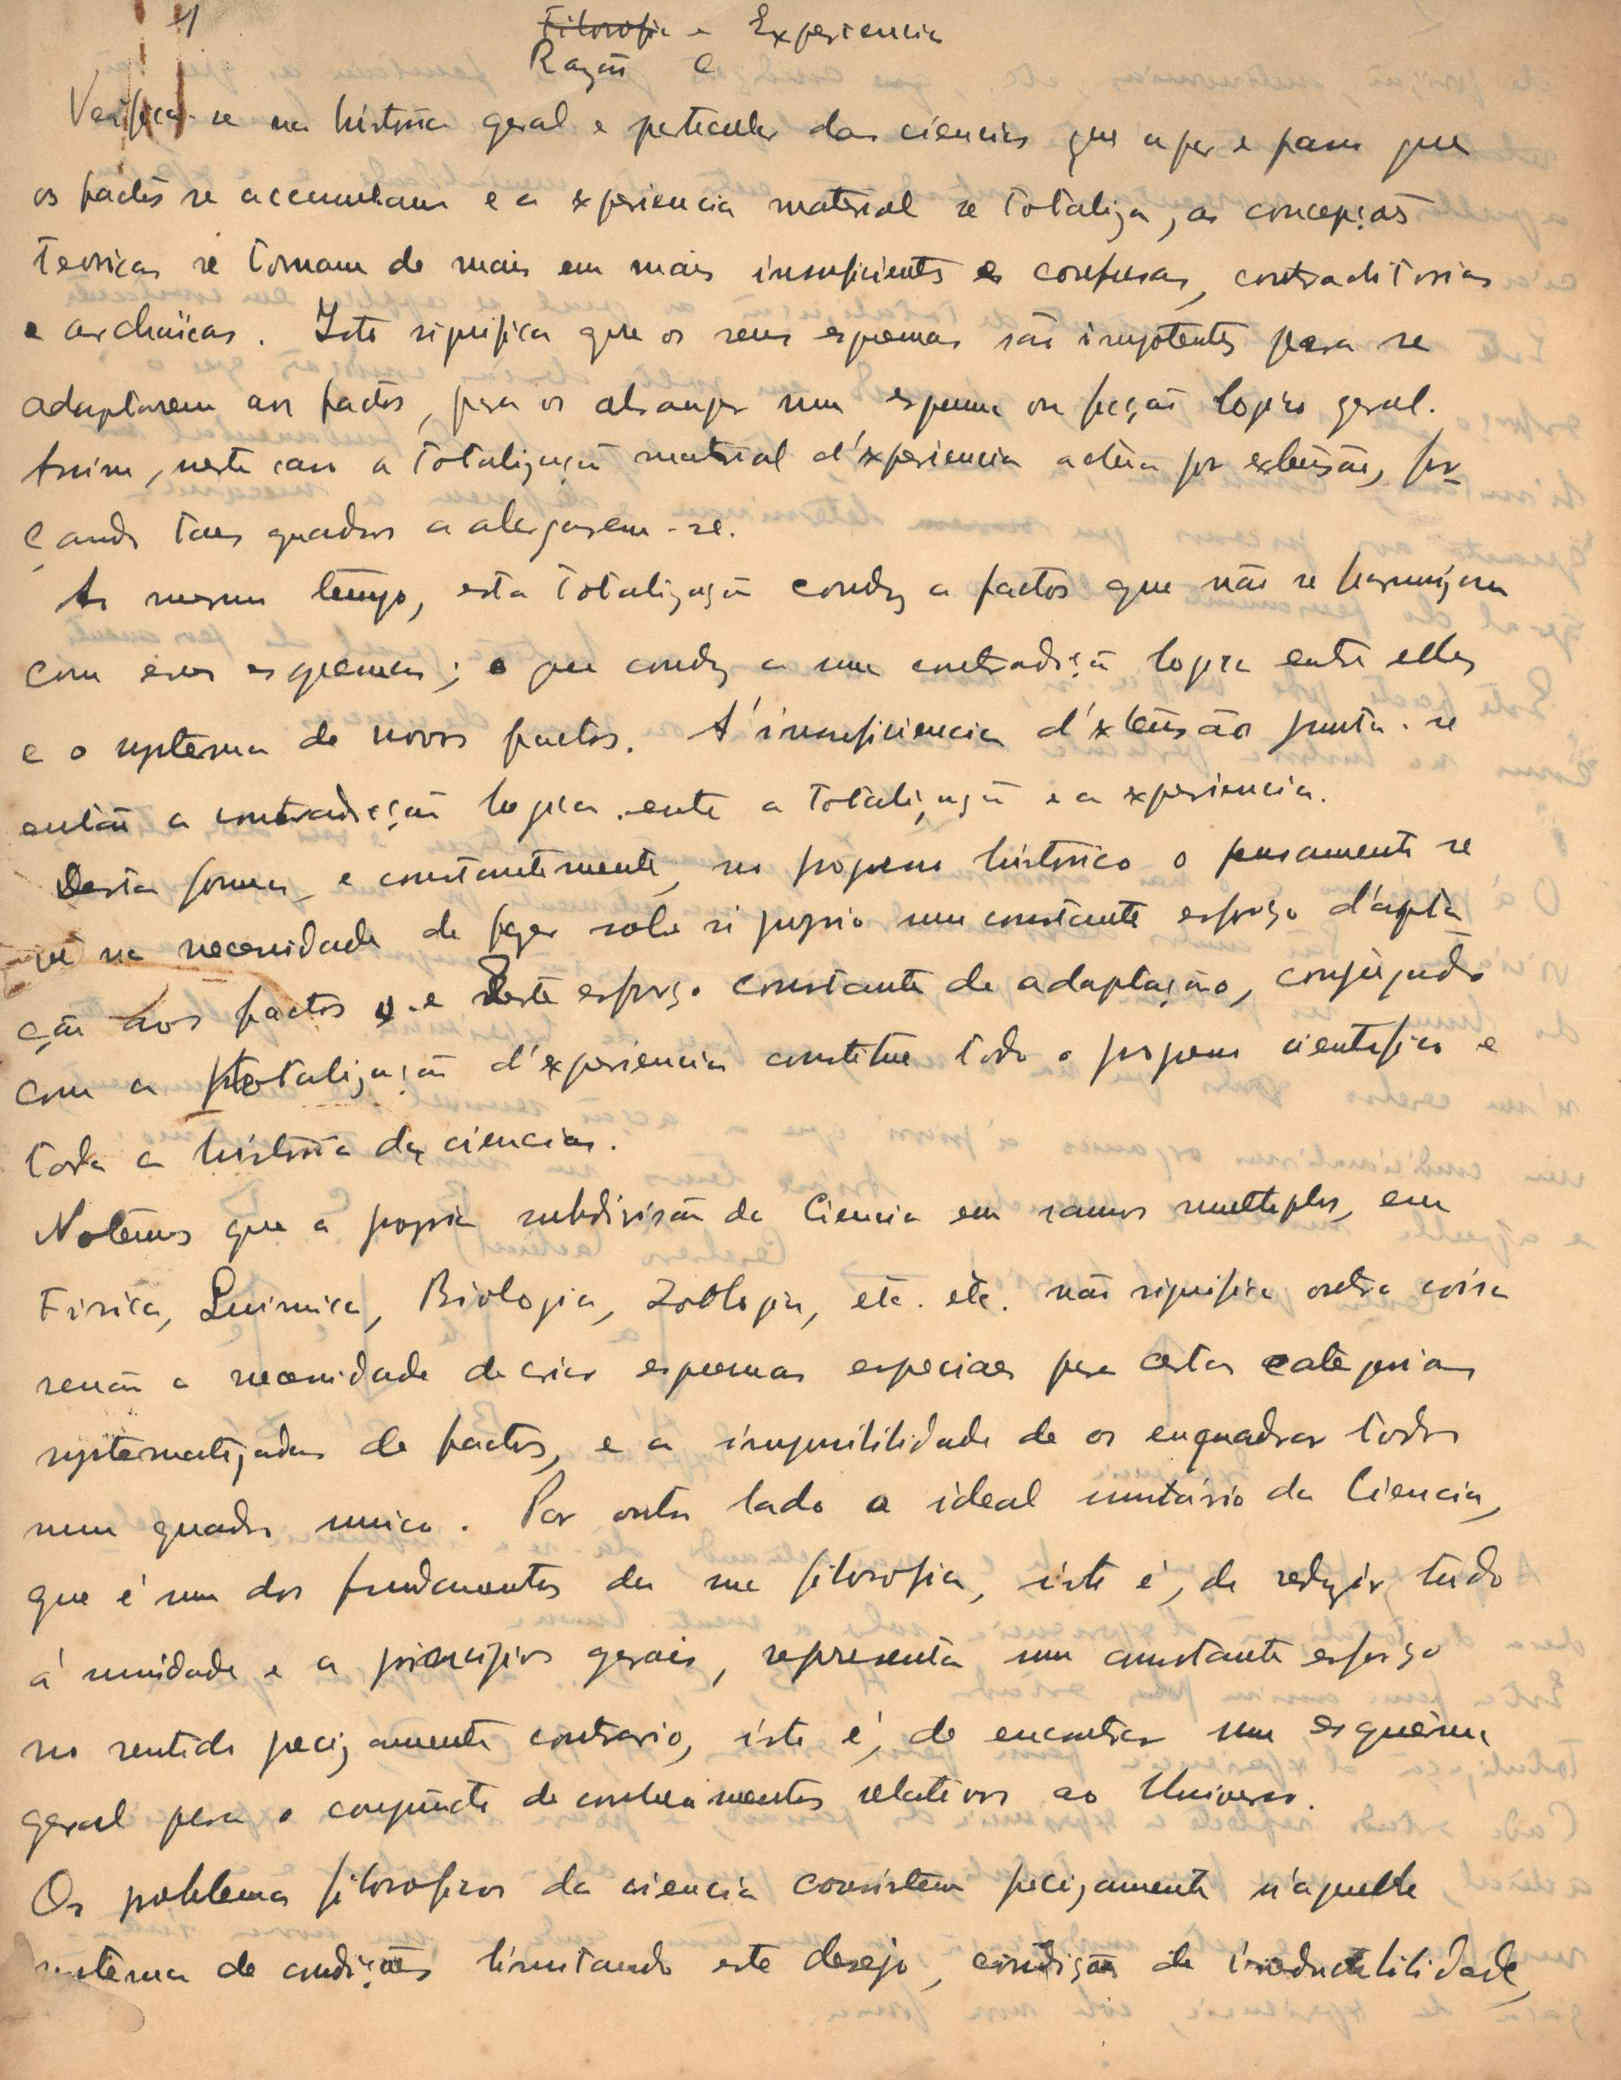 Filosofia e Experiencia
Razão e
Verifica-se na história geral e particular das ciencias que a par e passo que
os factos se accumulam e a experiencia material se totaliza, as concepções
teoricas se tornam de mais em mais insuficientes e confusas, contraditorias
e archaïcas. Isto significa que os seus esquemas são impotentes para se
adaptarem aos factos, para os abranger num esquema ou ficção logica geral.
Assim, neste caso a totalização material d'experiencia actúa por extensão, for-
çando taes quadros a alargarem-se.
Ao mesmo tempo, esta totalização conduz a factos que não se harmonizam
com esses esquemas; o que conduz a uma contradição logica entre elles
e o systema de novos factos. A' insuficiencia d'extensão junta-se
então a contradicção logica entre a totalização e a experiencia.
Desta forma, e constantemente, no progresso histórico o pensamento se
vê na necessidade de fazer sobre si proprio um constante esforço d'adapta
ção aos factos e este esforço constante de adaptação, conjugado
com a totalização d'experiencia constitue todo o progresso cientifico e
toda a história das ciencias.
Notemos que a propria subdivisão da Ciencia em ramos multiplos, em
Fisica, Quimica, Biologia, Zoologia, etc. etc. não significa outra coisa
senão a necessidade de criar esquemas especiaes para certas categorias
systematizadas de factos, e a impossibilidade de os enquadrar todos
num quadro unico. Por outro lado o ideal unitário da Ciencia,
que é um dos fundamentos da sua filosofia, isto é, de reduzir tudo
á unidade e a principios gerais, representa um constante esforço
no sentido precizamente contrario, isto é, de encontrar um esquema
geral para o conjuncto de conhecimentos relativos ao Universo.
Os problemas filosoficos da ciencia consistem precizamente n'aquelle
systema de condições limitando este desejo, condições de irreductibilidade,